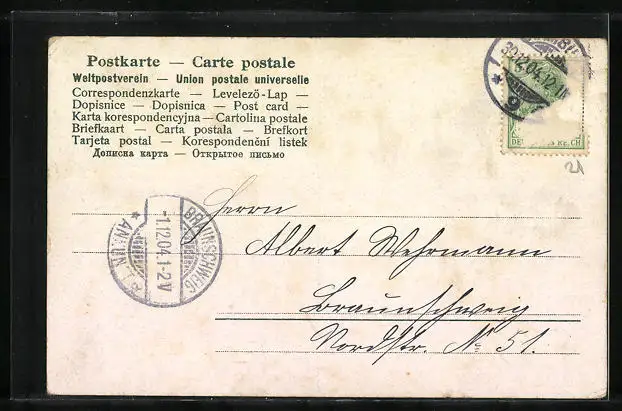 Postkarte — Carte postale
Weltpostverein — Union postale universelle
Correspondenzkarte — Levelező-Lap —
Dopisnice — Dopisnica — Post card —
Karta korespondencyjna — Cartolina postale
Briefkaart — Carta postala — Brefkort
Tarjeta postal — Korespondenční listek
Дописна карта — Открытое письмо
12.04.12
REICH
21
BRAUNSCHWEIG
1.12.04.1-2V
ANKUN
Herrn
Albert Wehrmann
Braunschweig
Nordstr. No 51.